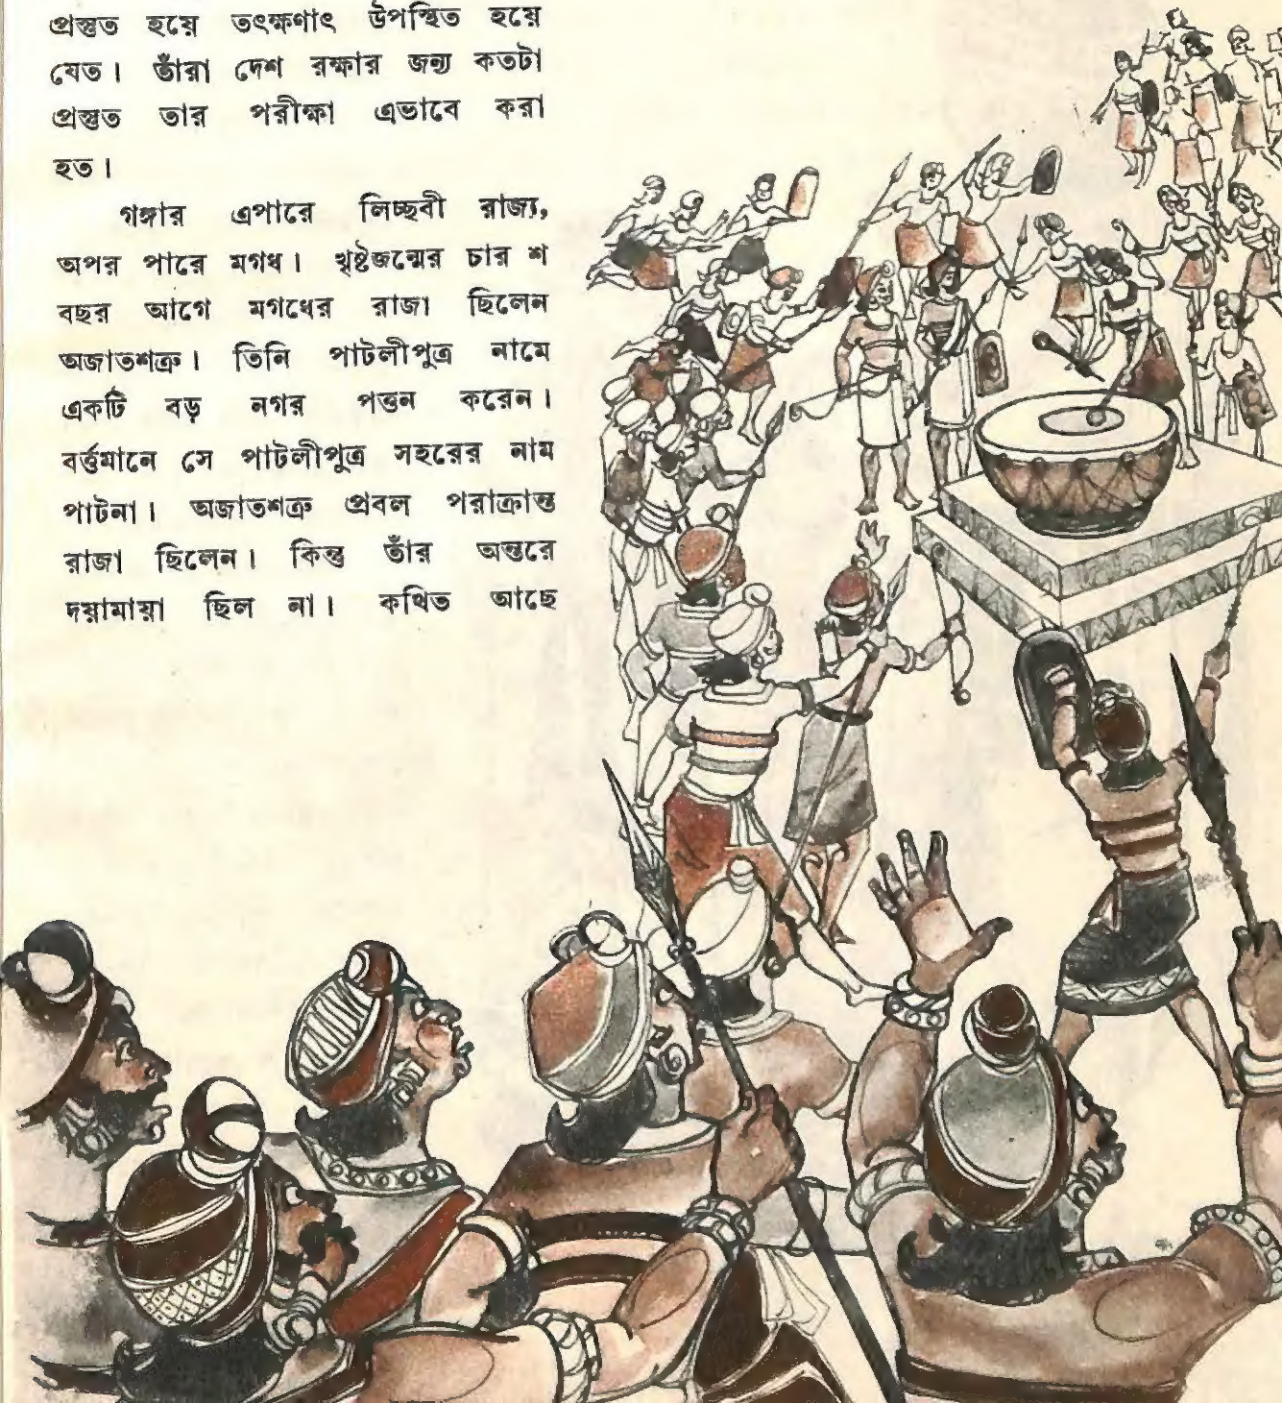 প্রস্তুত হয়ে তৎক্ষণাৎ উপস্থিত হয়ে
যেত। তাঁরা দেশ রক্ষার জন্য কতটা
প্রস্তুত তার পরীক্ষা এভাবে করা
হত।
গঙ্গার এপারে লিচ্ছবী রাজ্য,
অপর পারে মগধ। খৃষ্টজন্মের চার শ
বছর আগে মগধের রাজা ছিলেন
অজাতশত্রু। তিনি পাটলীপুত্র নামে
একটি বড় নগর পত্তন করেন।
বর্ত্তমানে সে পাটলীপুত্র সহরের নাম
পাটনা। অজাতশত্রু প্রবল পরাক্রান্ত
রাজা ছিলেন। কিন্তু তাঁর অন্তরে
দয়ামায়া ছিল না। কথিত আছে